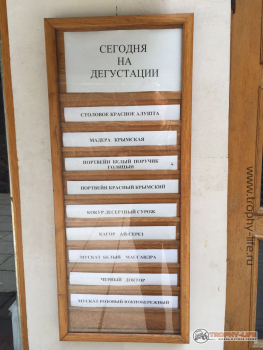 СЕГОДНЯ
НА
ДЕГУСТАЦИИ
СТОЛОВОЕ КРАСНОЕ АЛУШТА
МАДЕРА КРЫМСКАЯ
ПОРТВЕЙН БЕЛЫЙ ПОРУЧИК
ГОЛИЦЫН
ПОРТВЕЙН КРАСНЫЙ КРЫМСКИЙ
КОКУР ДЕСЕРТНЫЙ СУРОЖ
КАГОР АЙ-СЕРЕЗ
МУСКАТ БЕЛЫЙ МАССАНДРА
ЧЕРНЫЙ ДОКТОР
МУСКАТ РОЗОВЫЙ ЮЖНОБЕРЕЖНЫЙ
www.trophy-life.ru
TROPHY-LIFE